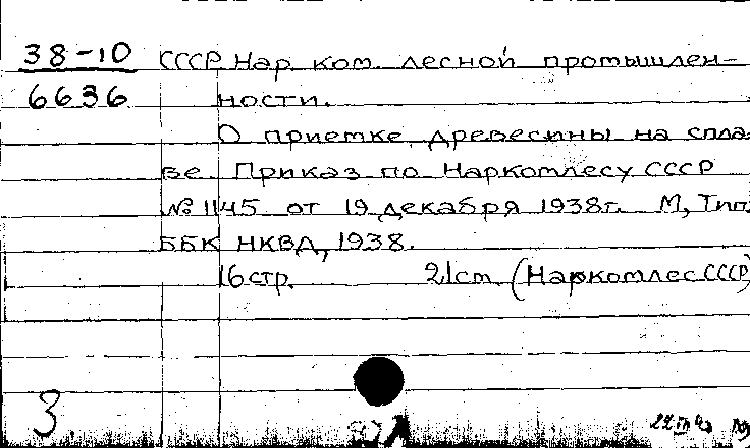 38-10 СССР Нар. ком. лесной промышлен-
6636 ности.
О приемке древесины на спла-
ве. Приказ по Наркомлесу СССР
№ 1145 от 19 декабря 1938г. М, Тип.
ББК НКВД, 1938.
16стр. 21см (Наркомлес СССР)
3